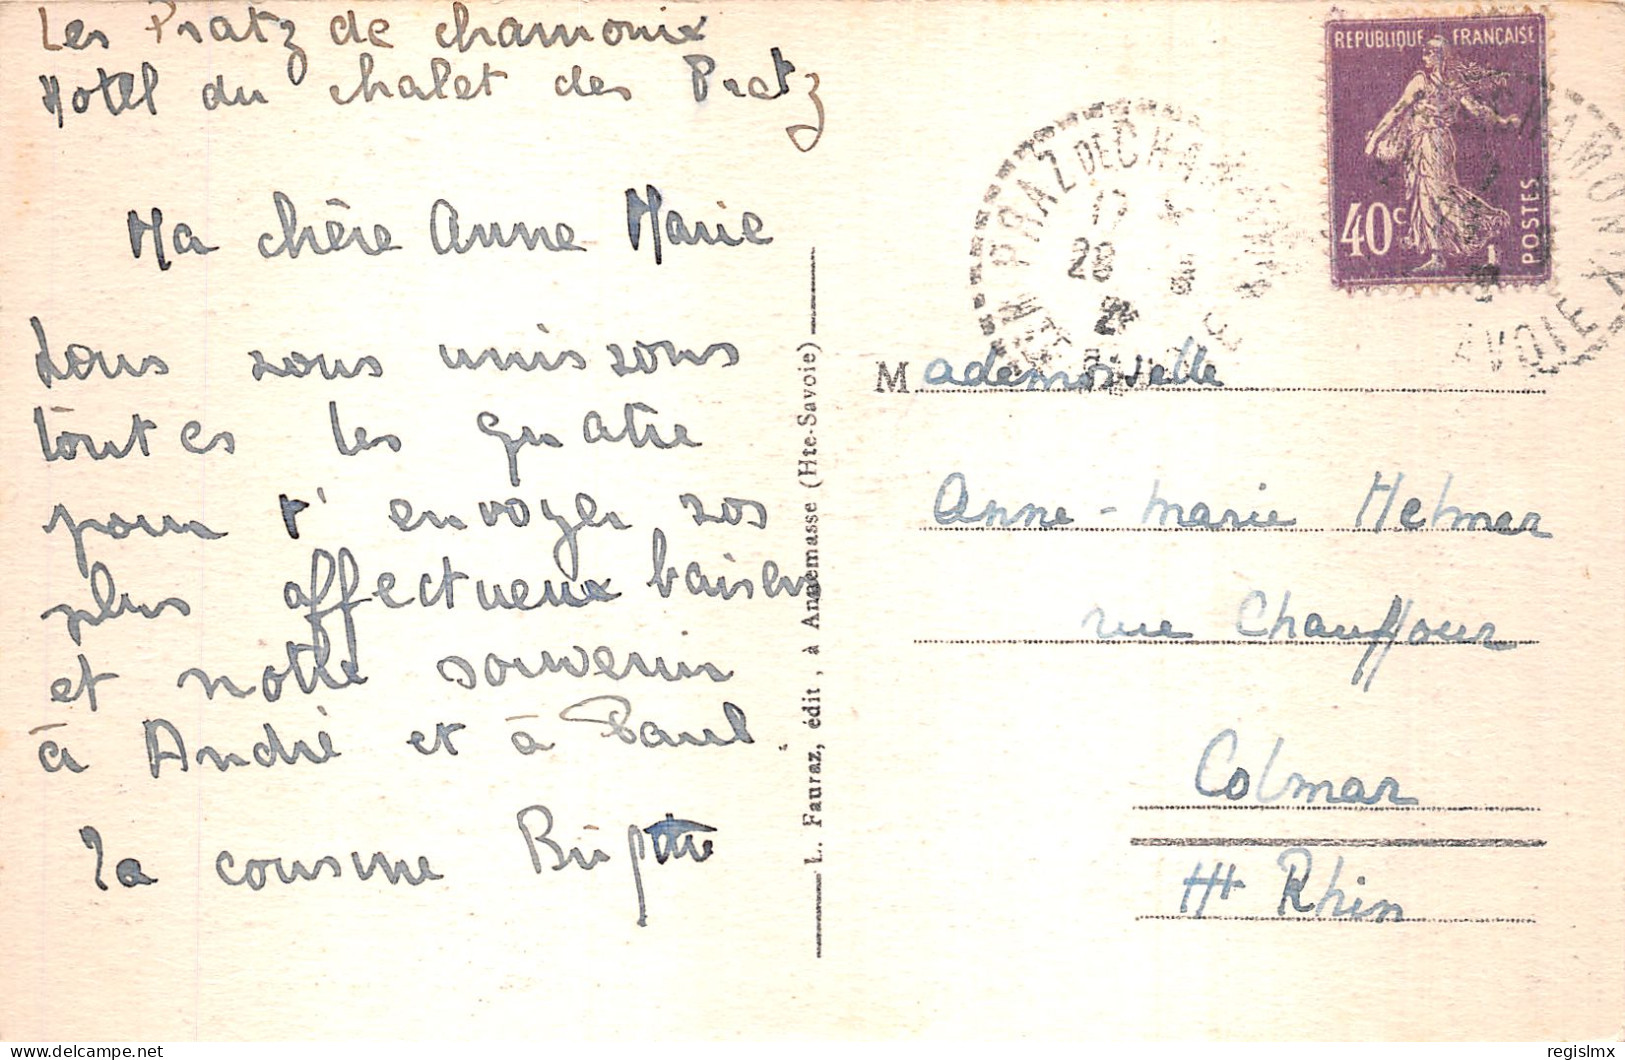 Les Pratz de chamonix
Hotel du chalet des Pratz
Ma chère Anne Marie
Nous nous unissons
toutes les quatre
pour t'envoyer nos
plus affectueux baisers
et notre souvenir
à André et à Paul
Ta cousine Brigitte
L. Fauraz, édit, à Annemasse (Hte-Savoie)
REPUBLIQUE FRANÇAISE
40c
POSTES
PRAZ DE CHAM
28
CHAMONIX
Mademoiselle
Anne-Marie Helmer
rue Chauffour
Colmar
Ht Rhin
regislmx
delcampe.net